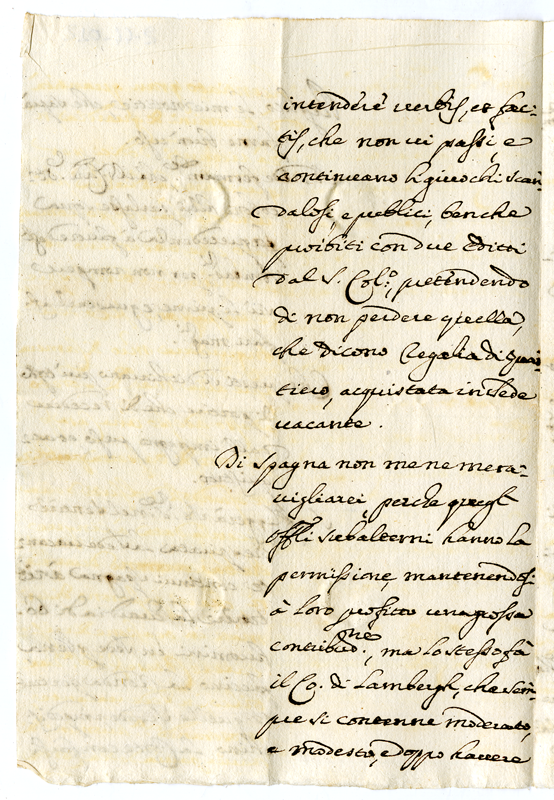 intendere verbis, et fac-
tis, che non vi passi, e
continuano li giuochi scan-
dalosi, e publici, benche
proibiti con due Editti
dal S. Coll.o, pretendendo
di non perdere quella,
che dicono Regalia di Quar-
tiero, acquistata in Sede
vacante.
Di Spagna non me ne mera-
vigliarei, perche quegl'
Offli subalterni hanno la
permissione, mantenendosi
à loro profitto una grossa
contribud.ne, ma lo stesso fà
il Co. di Lambergh, che sem-
pre si contenne moderato,
e modesto, e doppo havere